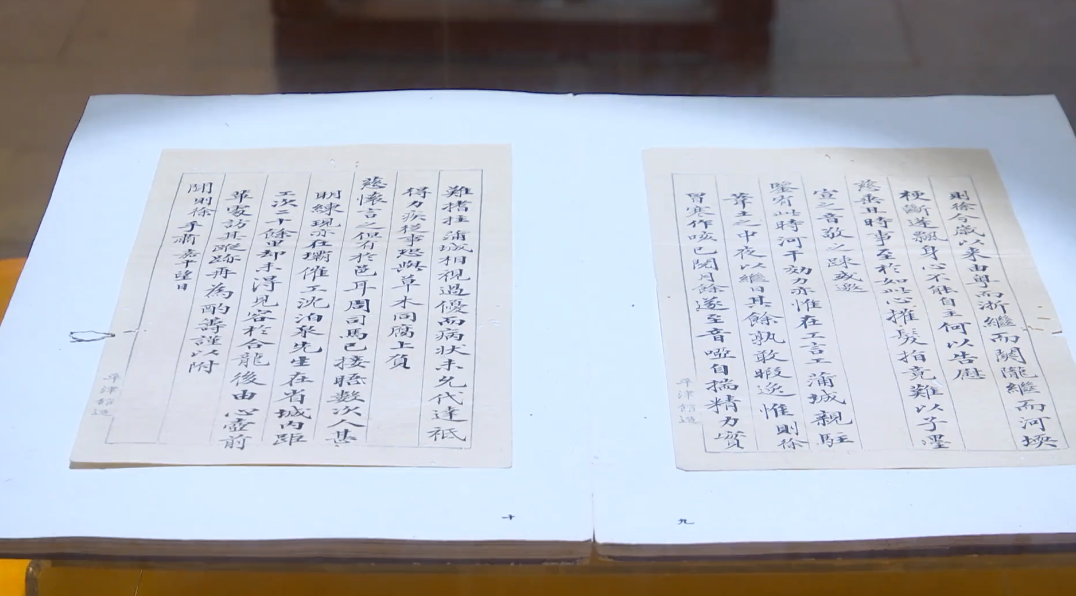 則徐今歲以來由粵而浙繼而關隴繼而河堧
梗斷蓬飄身心不能自主何以告慰
慈垂且時事至於如此心摧髮指竟難以子墨
宣之音敬之疎或邀
鑒宥此時河干効力亦惟在工言工蒲城親駐
葦土之中夜以繼日其餘孰敢暇逸惟則徐
冒寒作咳已閱月餘遂至音啞自揣精力實
九
難搘拄蒲城相視過優而病狀未允代達祇
得力疾從事恐與草木同腐上負
慈懷言之但有於邑耳周司馬已接晤數次人甚
明練現亦在壩催工沈泊泉先生在省城內距
工次二十餘里却未得見容於合龍後由心壺前
輩處訪其蹤跡再為酌籌謹以附
聞則徐手肅嘉平望日
十